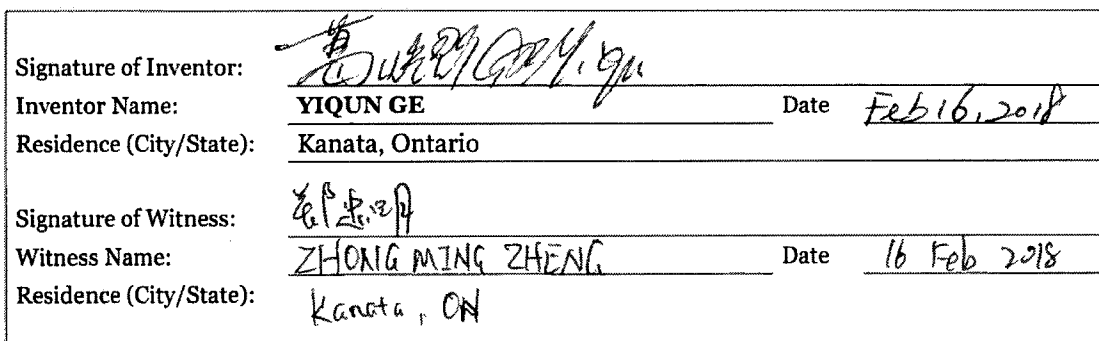 Signature of Inventor:
Inventor Name: YIQUN GE Date Feb 16, 2018
Residence (City/State): Kanata, Ontario
Signature of Witness: 郑忠明
Witness Name: ZHONG MING ZHENG Date 16 Feb 2018
Residence (City/State): Kanata, ON